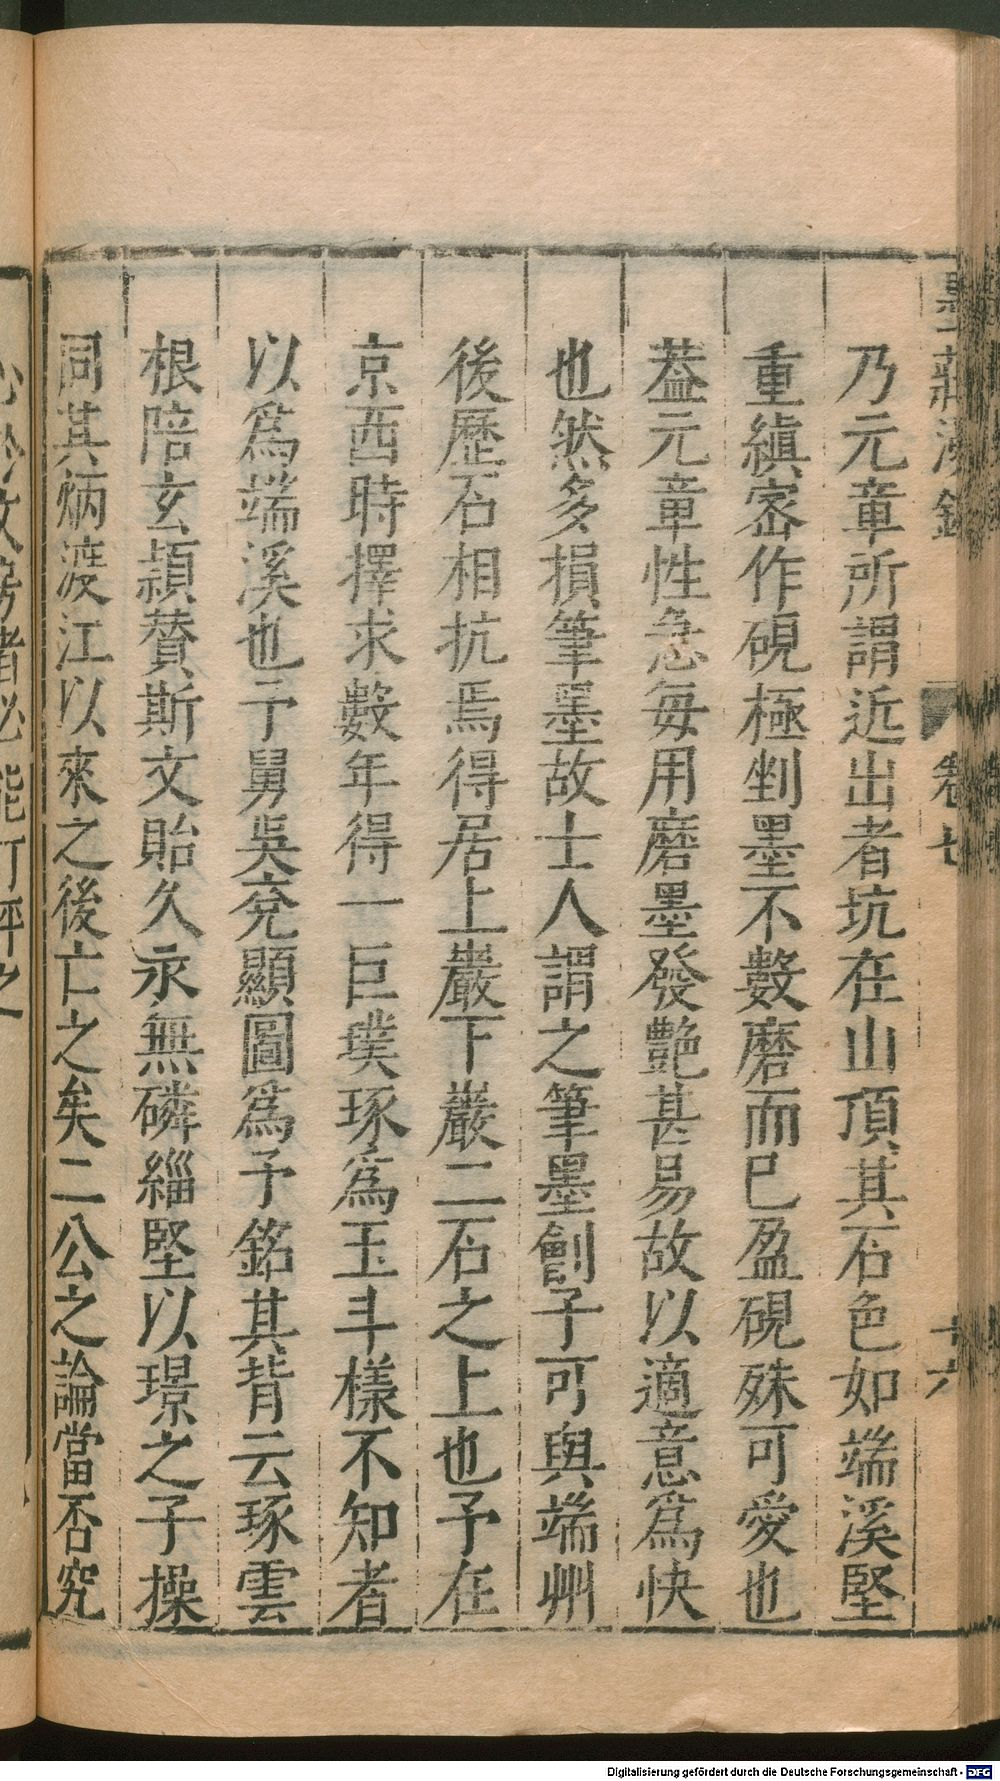 乃元章所謂近出者坑在山頂其石色如端溪堅
重縝宻作硯極剉墨不數磨而已盈硯殊可愛也
葢元章性急每用磨墨發艷甚易故以適意爲快
也然多損筆墨故士人謂之筆墨劊子可與端州
後歷石相抗焉得居上巖下巖二石之上也予在
京西時擇求數年得一巨璞琢爲玉斗樣不知者
以爲端溪也予舅吳兗顯圖爲予銘其背云琢雲
根陪玄頴賛斯文貽久永無磷緇堅以璟之子操
同其炳渡江以來之後亡之矣二公之論當否究
卷七
十六
Digitalisierung gefördert durch die Deutsche Forschungsgemeinschaft - DFG